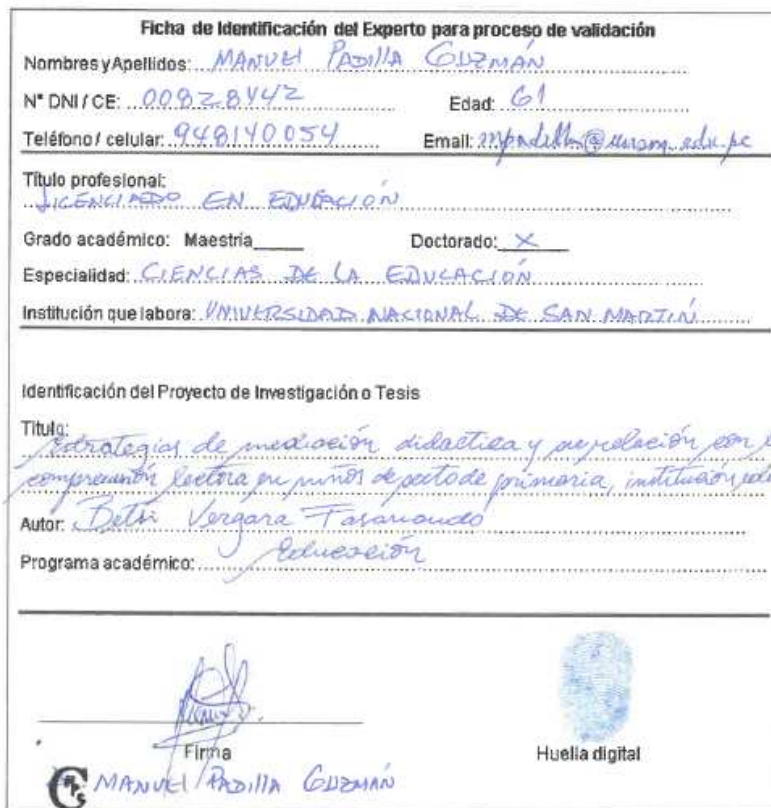 Ficha de Identificación del Experto para proceso de validación
Nombres y Apellidos: MANUEl PADIllA GUZMÁN
N° DNI / CE: 00828442 Edad: 61
Teléfono / celular: 948140054 Email: mpadilla@unsm.edu.pe
Título profesional:
LICENCIADO EN EDUCACIÓN
Grado académico: Maestría Doctorado: X
Especialidad: CIENCIAS DE LA EDUCACIÓN
Institución que labora: UNIVERSIDAD NACIONAL DE SAN MARTÍN
Identificación del Proyecto de Investigación o Tesis
Titulo:
Estrategias de mediación didactica y su relación con
comprensión lectora en niños de sexto de primaria, institución
Autor: Betsi Vergara Fasanando
Programa académico: Educación
Firma Huella digital
MANUEl PADIllA GUZMÁN